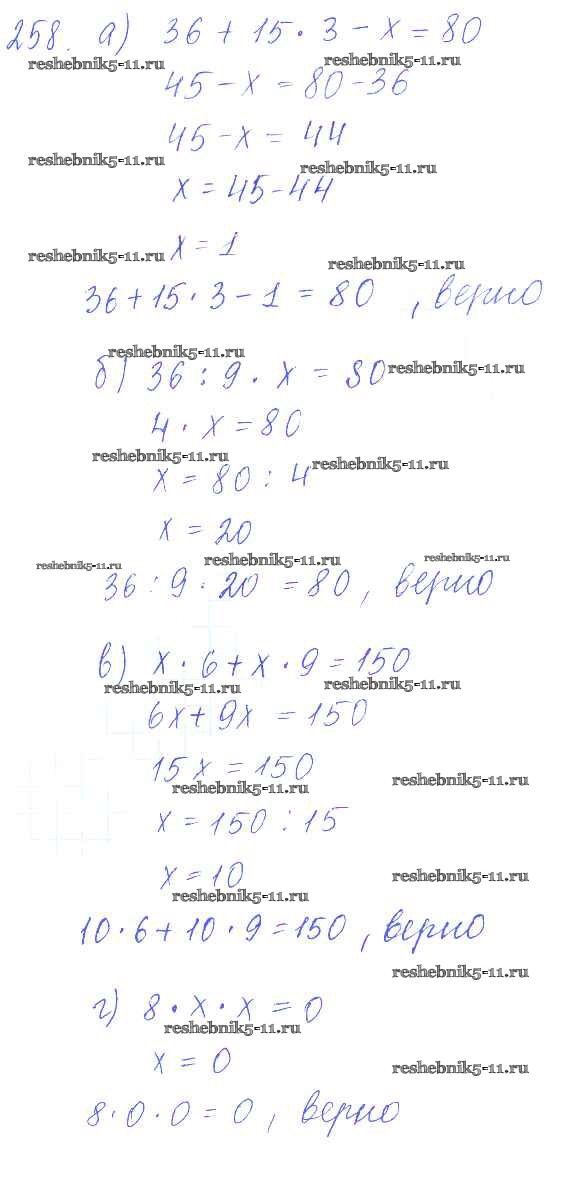 258. а) 36 + 15 · 3 − x = 80
reshebnik5-11.ru reshebnik5-11.ru
45 − x = 80 − 36
45 − x = 44
reshebnik5-11.ru reshebnik5-11.ru
x = 45 − 44
x = 1
reshebnik5-11.ru reshebnik5-11.ru
36 + 15 · 3 − 1 = 80 , верно
reshebnik5-11.ru
б) 36 : 9 · x = 80 reshebnik5-11.ru
4 · x = 80
reshebnik5-11.ru reshebnik5-11.ru
x = 80 : 4
x = 20
reshebnik5-11.ru reshebnik5-11.ru reshebnik5-11.ru
36 : 9 · 20 = 80, верно
в) x · 6 + x · 9 = 150
reshebnik5-11.ru reshebnik5-11.ru
6x + 9x = 150
15x = 150
reshebnik5-11.ru reshebnik5-11.ru
x = 150 : 15
x = 10 reshebnik5-11.ru
reshebnik5-11.ru
10 · 6 + 10 · 9 = 150 , верно
reshebnik5-11.ru
г) 8 · x · x = 0
reshebnik5-11.ru
x = 0 reshebnik5-11.ru
8 · 0 · 0 = 0, верно